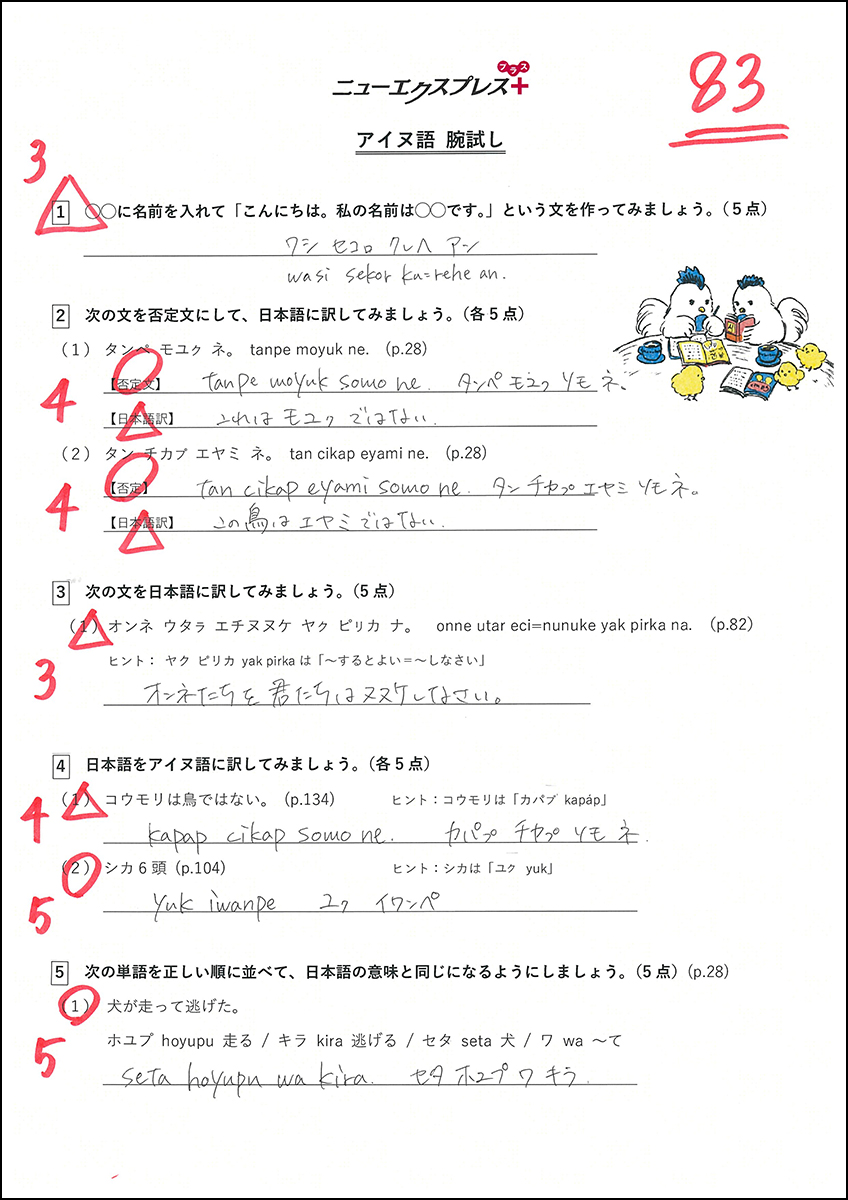 ニューエクスプレス+プラス
83
アイヌ語 腕試し
3
1 ○○に名前を入れて「こんにちは。私の名前は○○です。」という文を作ってみましょう。(5点)
ワシ セコロ クレヘ アン
wasi sekor ku=rehe an.
2 次の文を否定文にして、日本語に訳してみましょう。(各5点)
(1) タンペ モユㇰ ネ。 tanpe moyuk ne. (p.28)
【否定文】 tanpe moyuk somo ne. タンペ モユㇰ ソモ ネ、
4
【日本語訳】 これは モユク ではない.
(2) タン チカㇷ゚ エヤミ ネ。 tan cikap eyami ne. (p.28)
【否定】 tan cikap eyami somo ne. タン チカプ エヤミ ソモ ネ。
4
【日本語訳】 この鳥は エヤミ ではない.
3 次の文を日本語に訳してみましょう。(5点)
(1) オンネ ウタㇻ エチヌヌケ ヤㇰ ピㇼカ ナ。 onne utar eci=nunuke yak pirka na. (p.82)
ヒント: ヤㇰ ピㇼカ yak pirka は「~するとよい=~しなさい」
3
オンネたちを 君たちは ヌヌケしなさい。
4 日本語をアイヌ語に訳してみましょう。(各5点)
(1) コウモリは鳥ではない。 (p.134) ヒント:コウモリは「カパㇷ゚ kapáp」
4
kapap cikap somo ne. カパプ チカプ ソモ ネ.
(2) シカ6頭 (p.104) ヒント:シカは「ユㇰ yuk」
5
yuk iwanpe ユㇰ イワンペ
5 次の単語を正しい順に並べて、日本語の意味と同じになるようにしましょう。(5点) (p.28)
(1) 犬が走って逃げた。
ホユプ hoyupu 走る / キラ kira 逃げる / セタ seta 犬 / ワ wa ~て
5
seta hoyupu wa kira. セタ ホユプ ワ キラ.